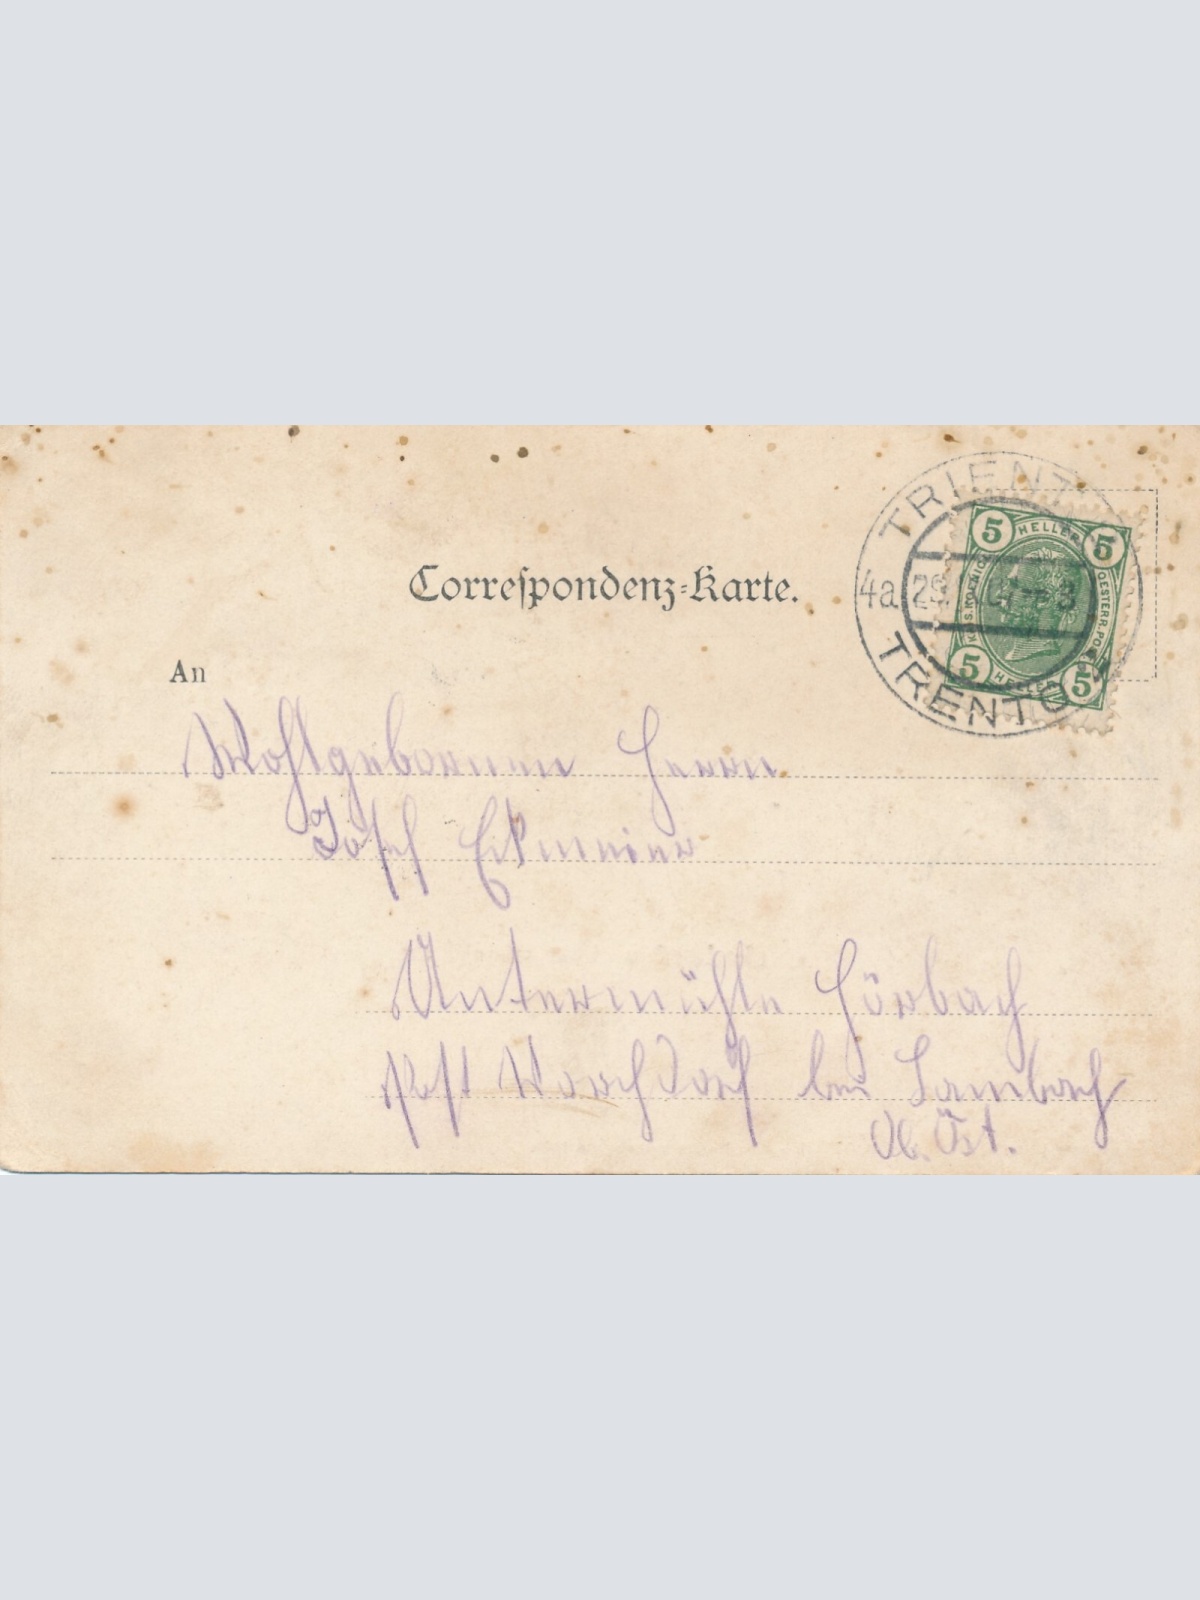 Correspondenz-Karte.
TRIENT
4a 29
TRENTO
5 HELLER 5
KAIS. KOENIGL. OESTERR. POST
5 HELLER 5
An
Wohlgebornen Herrn
Josef
Untermühle Hörbach
Post bei Lambach
Ob. Öst.